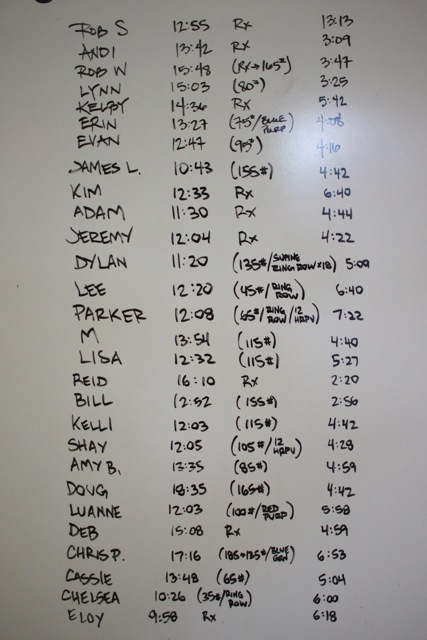 ROB S 12:55 Rx 13:13
ANDI 13:42 Rx 3:09
ROB W 15:48 (Rx→165#) 3:47
LYNN 15:03 (80#) 3:25
KELBY 14:36 Rx 5:42
ERIN 13:27 (75#/BLUE PURP) 4:08
EVAN 12:47 (95#) 4:16
JAMES L. 10:43 (155#) 4:42
KIM 12:33 Rx 6:40
ADAM 11:30 Rx 4:44
JEREMY 12:04 Rx 4:22
DYLAN 11:20 (135#/SUPINE RING ROW x18) 5:09
LEE 12:20 (45#/RING ROW) 6:40
PARKER 12:08 (65#/RING ROW/12 HRPU) 7:22
M 13:54 (115#) 4:40
LISA 12:32 (115#) 5:27
REID 16:10 Rx 2:20
BILL 12:52 (155#) 2:56
KELLI 12:03 (115#) 4:42
SHAY 12:05 (105#/12 HRPU) 4:28
AMY B. 13:35 (85#) 4:59
DOUG 18:35 (165#) 4:42
LUANNE 12:03 (100#/RED PURP) 5:58
DEB 15:08 Rx 4:59
CHRIS P. 17:16 (185→135#/BLUE GRN) 6:53
CASSIE 13:48 (65#) 5:04
CHELSEA 10:26 (35#/RING ROW) 6:00
ELOY 9:58 Rx 6:18